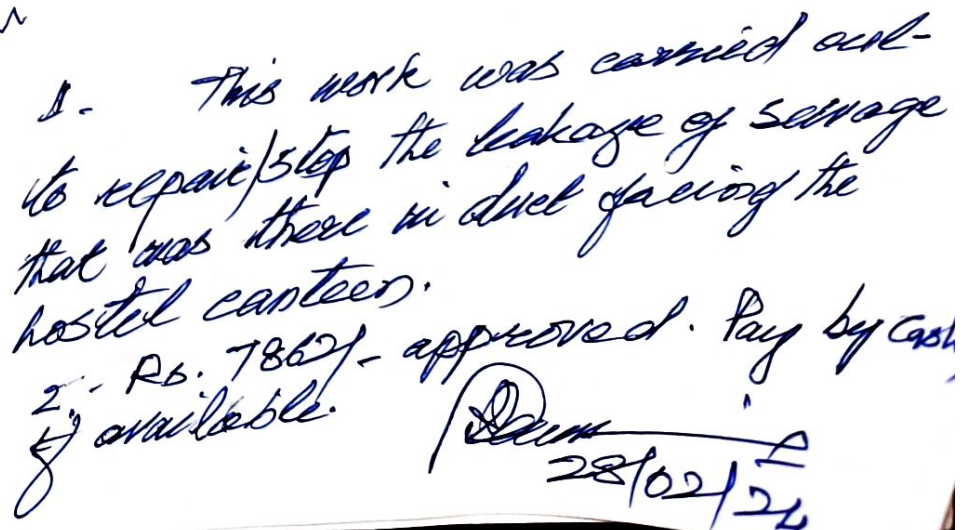 1. This work was carried out
to repair/stop the leakage of sewage
that was there in duct facing the
hostel canteen.
2. Rs. 7862/- approved. Pay by cash
if available.
28/02/